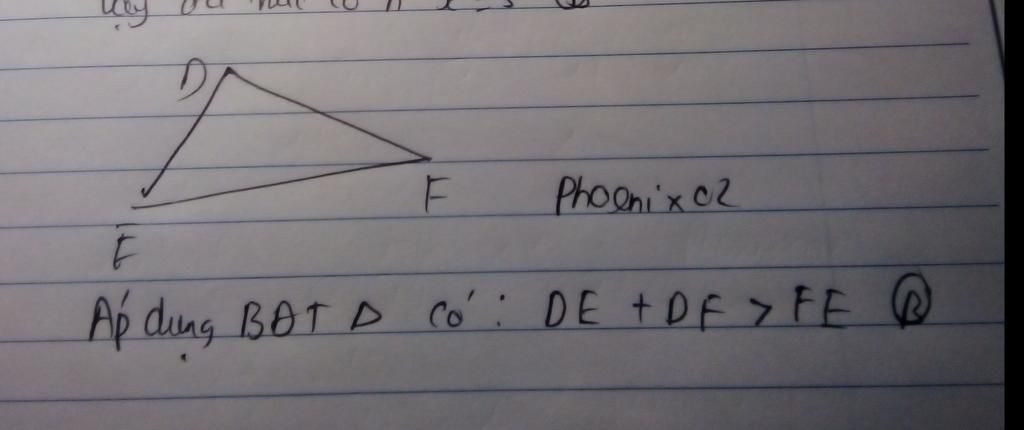 D
F
Phoenix c2
E
Áp dụng BĐT Δ có : DE + DF > FE Ⓑ